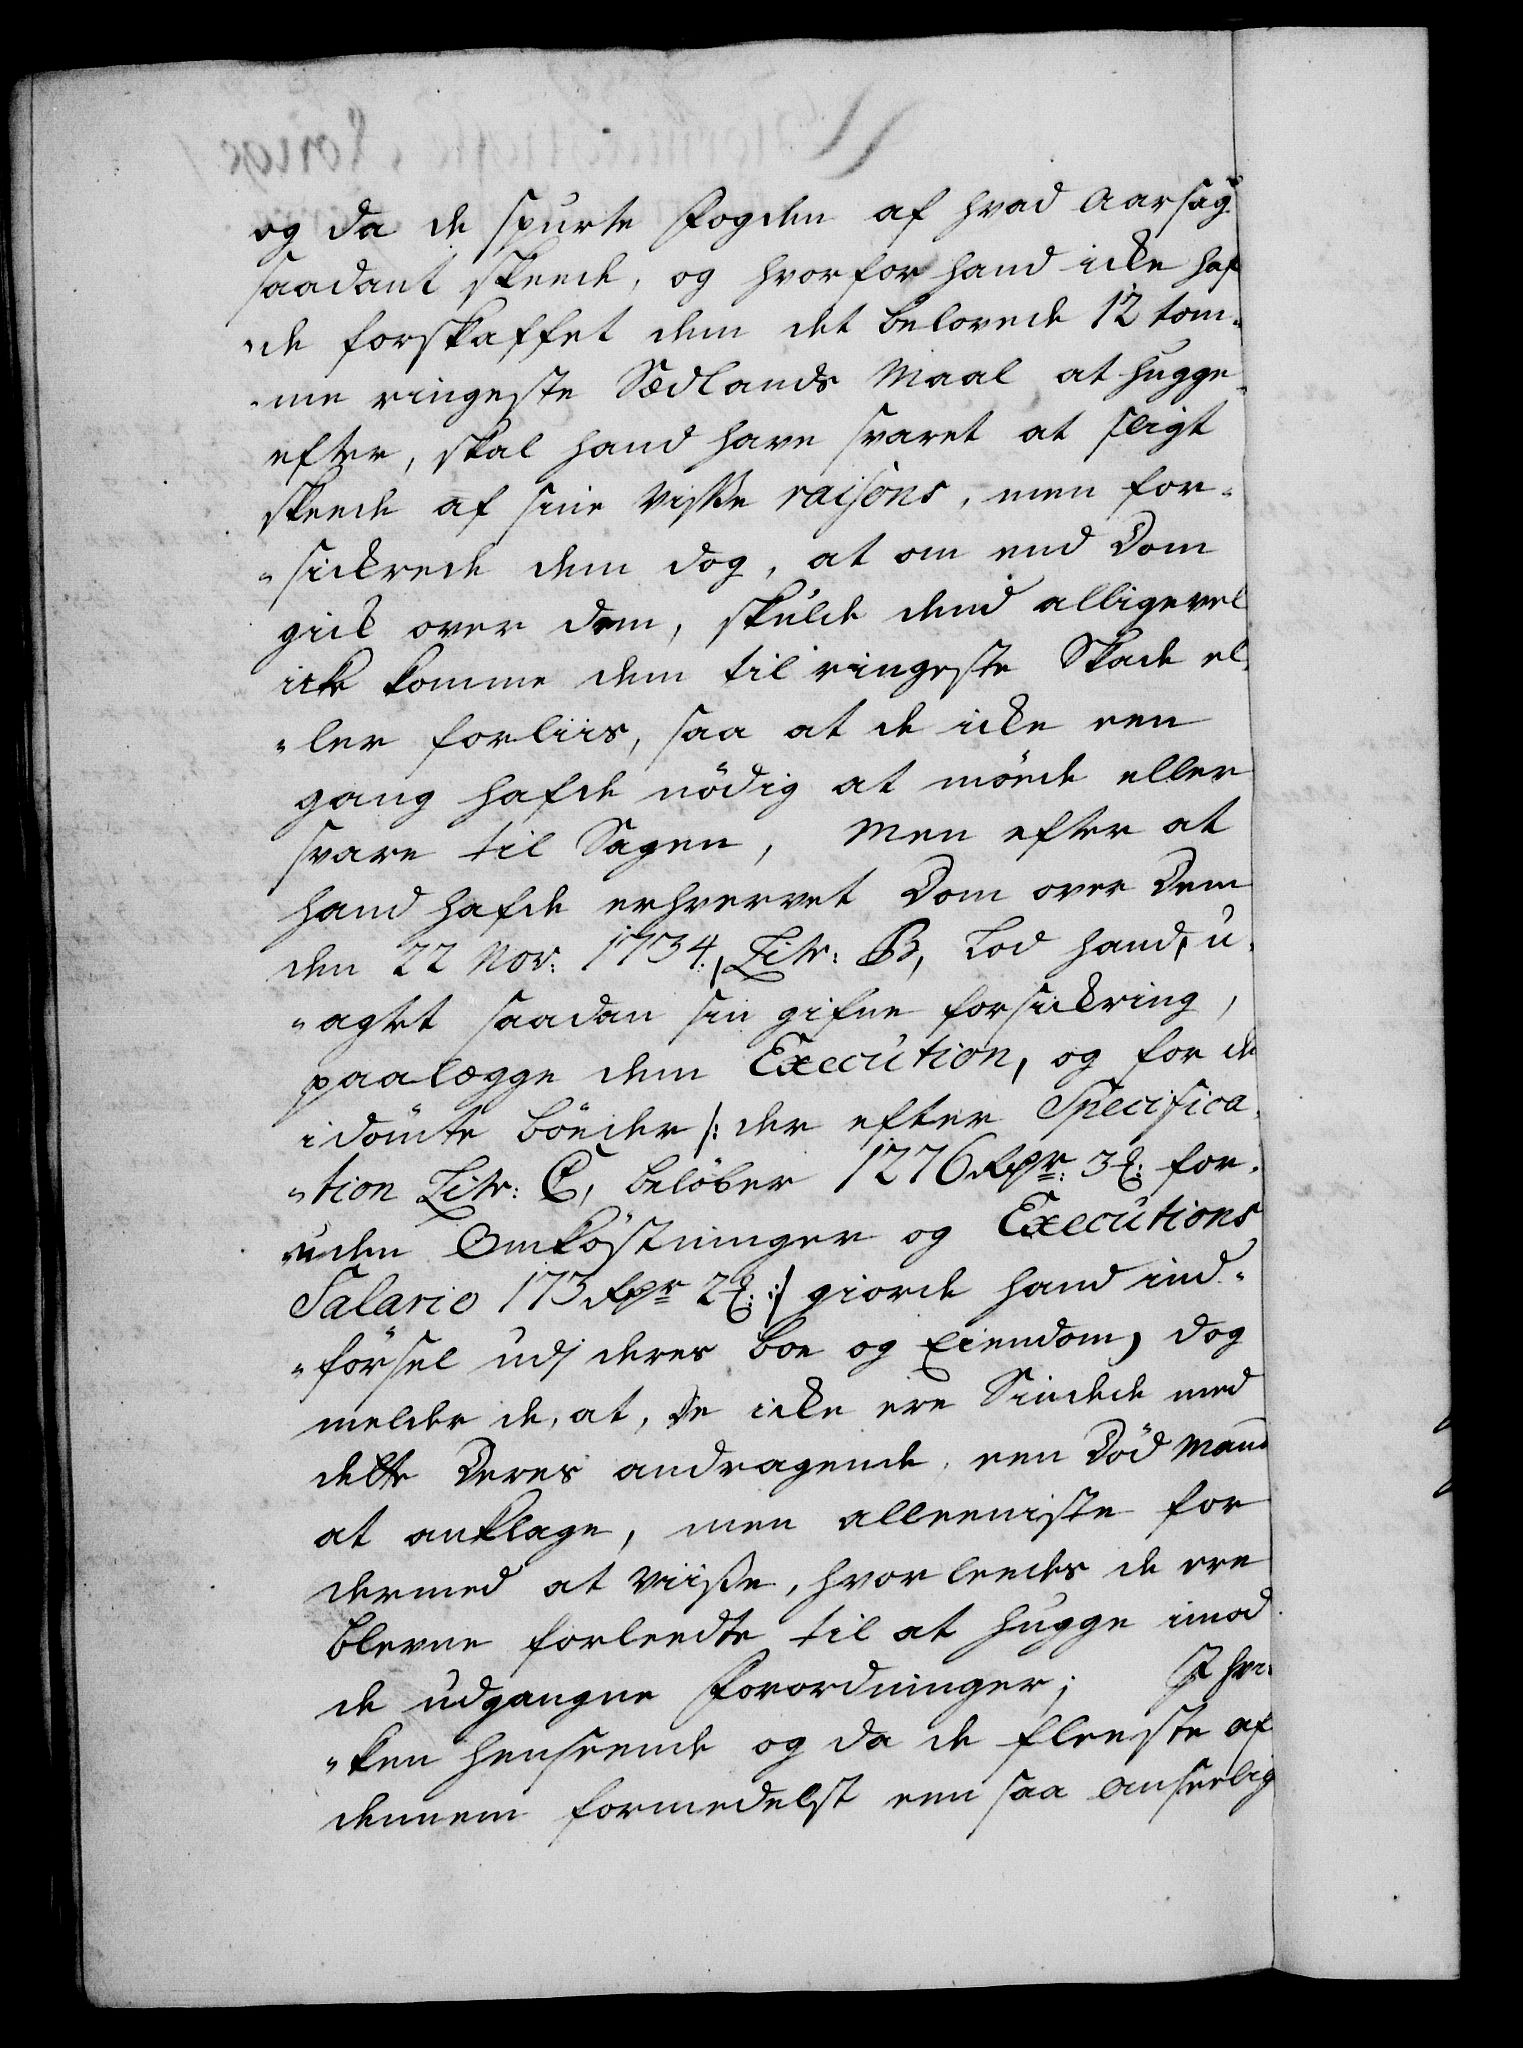 og da de spurte Fogden af hvad Aarsag
saadant skeede, og hvorfor hand icke haf
"de forskaffet dem det belovede 12 tom-
"me ringeste Sædlands Maal at hugge
efter, skal hand have svaret at sligt
skeede af sine visse raisons, men for-
"sickrede dem dog, at om end Dom
gick over dem, skulde dend alligevel
icke komme dem til ringeste Skade el
"ler forliis, saa at de icke een
gang hafde nödig at möede eller
svare til Sagen, Men efter at
hand hafde erhvervet Dom over Dem
den 22 Nov: 1734, Litr: B, Lod hand, u-
"agtet saadan sin gifne forsickring,
paalægge dem Execution, og for de
idömte böeder /: der efter Specifica-
"tion Litr: C, belöber 1276 Rdr: 3 ß: for-
uden Omköstninger og Executions
Salario 173 Rdr 2 ß: :/ giorde hand ind-
"försel udj deres boe og Eiendom, dog
melder de, at, de icke ere Sindede med
dette Deres andragende, een Död Mand
at anklage, men alleeniste for
dermed at viiße, hvorleedes de ere
blevne forleedte til at hugge imod
de udgangne Forordninger; I hvi-
"ken henseende og da de fleeste af
dennem formedelst een saa anseelig